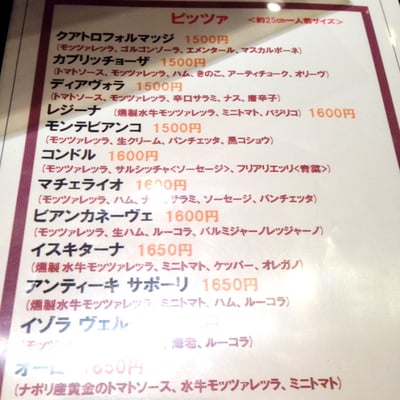 ピッツァ <約25cm一人前サイズ>
クアトロフォルマッジ 1500円
(モッツァレッラ、ゴルゴンゾーラ、エメンタール、マスカルポーネ)
カプリッチョーザ 1500円
(トマトソース、モッツァレッラ、ハム、きのこ、アーティチョーク、オリーヴ)
ディアヴォラ 1500円
(トマトソース、モッツァレッラ、辛口サラミ、ナス、唐辛子)
レジーナ (燻製水牛モッツァレッラ、ミニトマト、バジリコ) 1600円
モンテビアンコ 1500円
(モッツァレッラ、生クリーム、パンチェッタ、黒コショウ)
コンドル 1600円
(モッツァレッラ、サルシッチャ<ソーセージ>、フリアリエッリ<青菜>)
マチェライオ 1600円
(モッツァレッラ、ハム、サラミ、ソーセージ、パンチェッタ)
ビアンカネーヴェ 1600円
(モッツァレッラ、生ハム、ルーコラ、パルミジャーノレッジャーノ)
イスキターナ 1650円
(燻製水牛モッツァレッラ、ミニトマト、ケッパー、オレガノ)
アンティーキ サポーリ 1650円
(燻製水牛モッツァレッラ、ミニトマト、ハム、ルーコラ)
イゾラ ヴェル
(モッツ 、ルーコラ)
オーロ 1650円
(ナポリ産黄金のトマトソース、水牛モッツァレッラ、ミニトマト)